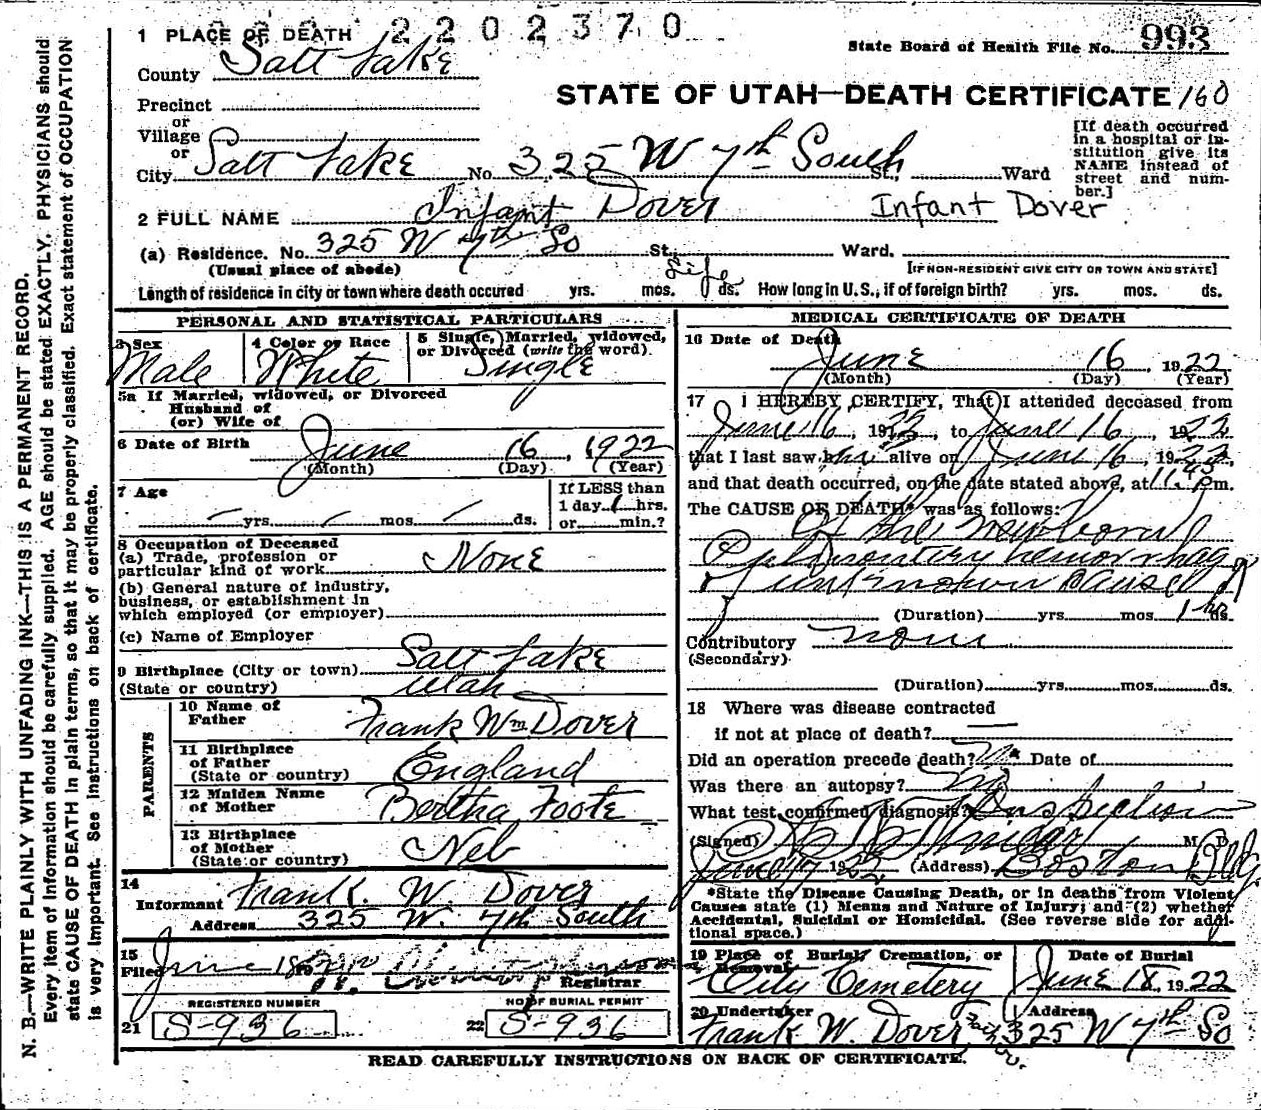 1 PLACE OF DEATH 2202370
State Board of Health File No. 993
County Salt Lake
STATE OF UTAH—DEATH CERTIFICATE 160
Precinct
or
Village
or
City Salt Lake No. 325 W 7th South St., Ward
[If death occurred in a hospital or institution give its NAME instead of street and number.]
2 FULL NAME Infant Dover Infant Dover
(a) Residence. No. 325 W 7th So St., Ward.
(Usual place of abode) [IF NON-RESIDENT GIVE CITY OR TOWN AND STATE]
Length of residence in city or town where death occured yrs. mos. Life ds. How long in U.S., if of foreign birth? yrs. mos. ds.
PERSONAL AND STATISTICAL PARTICULARS
3 Sex
Male
4 Color or Race
White
5 Single, Married, widowed,
or Divorced (write the word).
Single
5a If Married, widowed, or Divorced
Husband of
(or) Wife of
6 Date of Birth June 16, 1922
(Month) (Day) (Year)
7 Age
yrs. mos. ds.
If LESS than
1 day 1 hrs.
or min.?
8 Occupation of Deceased
(a) Trade, profession or
particular kind of work None
(b) General nature of industry,
business, or establishment in
which employed (or employer)
(c) Name of Employer
9 Birthplace (City or town) Salt Lake
(State or country) Utah
PARENTS
10 Name of
Father Frank Wm Dover
11 Birthplace
of Father
(State or country) England
12 Maiden Name
of Mother Bertha Foote
13 Birthplace
of Mother
(State or country) Neb
14
Informant Frank. W. Dover
Address 325 W. 7th South
15
Filed June 18
Registrar
REGISTERED NUMBER
21 S-936
NO. OF BURIAL PERMIT
22 S-936
MEDICAL CERTIFICATE OF DEATH
16 Date of Death
June 16, 1922
(Month) (Day) (Year)
17 I HEREBY CERTIFY, That I attended deceased from
June 16, 1922, to June 16, 1922
that I last saw him alive on June 16, 1922,
and that death occurred, on the date stated above, at 11:45 Pm.
The CAUSE OF DEATH* was as follows:
Of the newborn
Pulmonary hemorrhage
unknown cause
(Duration) yrs. mos. 1 hr ds.
Contributory none
(Secondary)
(Duration) yrs. mos. ds.
18 Where was disease contracted
if not at place of death?
Did an operation precede death? No Date of
Was there an autopsy? No
What test confirmed diagnosis? Inspection
(Signed) M. D.
June 17 1922 (Address) Boston Bldg
*State the Disease Causing Death, or in deaths from Violent
Causes state (1) Means and Nature of Injury; and (2) whether
Accidental, Suicidal or Homicidal. (See reverse side for addi-
tional space.)
19 Place of Burial, Cremation, or
Removal
City Cemetery
Date of Burial
June 18, 1922
20 Undertaker
Frank W. Dover father.
Address
325 W 7th So
READ CAREFULLY INSTRUCTIONS ON BACK OF CERTIFICATE.
N. B.—WRITE PLAINLY WITH UNFADING INK—THIS IS A PERMANENT RECORD.
Every item of information should be carefully supplied. AGE should be stated EXACTLY. PHYSICIANS should
state CAUSE OF DEATH in plain terms, so that it may be properly classified. Exact statement of OCCUPATION
is very important. See instructions on back of certificate.